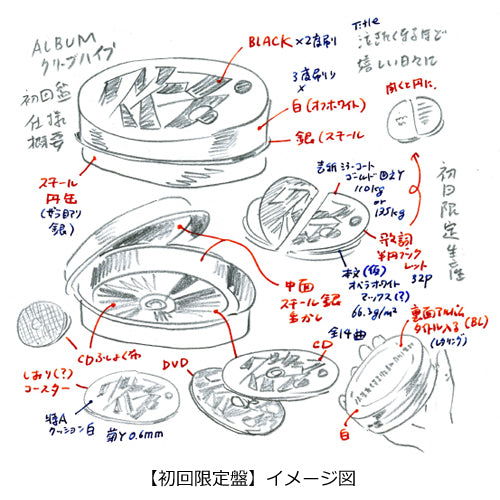 ALBUM
クリープハイプ
初回盤
仕様
概要
BLACK ×2度刷り
Title
泣きたくなるほど
嬉しい日々に
3度刷り
×
白(オフホワイト)
銀(スチール
開くと円に。
スチール
円缶
銀)
表紙 ミラーコート
ゴールド
110kg
or
135kg
初回限定生産
歌詞
半円ブック
レット
32p
本文(仮)
オペラホワイト
マックス(?)
中面
スチール銀
生かし
CDふしょく布
CD
全14曲
DVD
しおり(?)
コースター
特A
クッション白 菊Y 0.6mm
裏面アルバム
タイトル入る(BL)
白
【初回限定盤】イメージ図